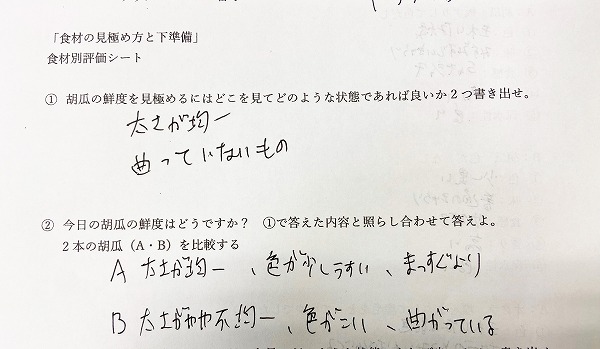 「食材の見極め方と下準備」
食材別評価シート
① 胡瓜の鮮度を見極めるにはどこを見てどのような状態であれば良いか２つ書き出せ。
太さが均一
曲っていないもの
② 今日の胡瓜の鮮度はどうですか？ ①で答えた内容と照らし合わせて答えよ。
２本の胡瓜（A・B）を比較する
A 太さが均一、色が少しうすい、まっすぐより
B 太さがやや不均一、色がこい、曲がっている